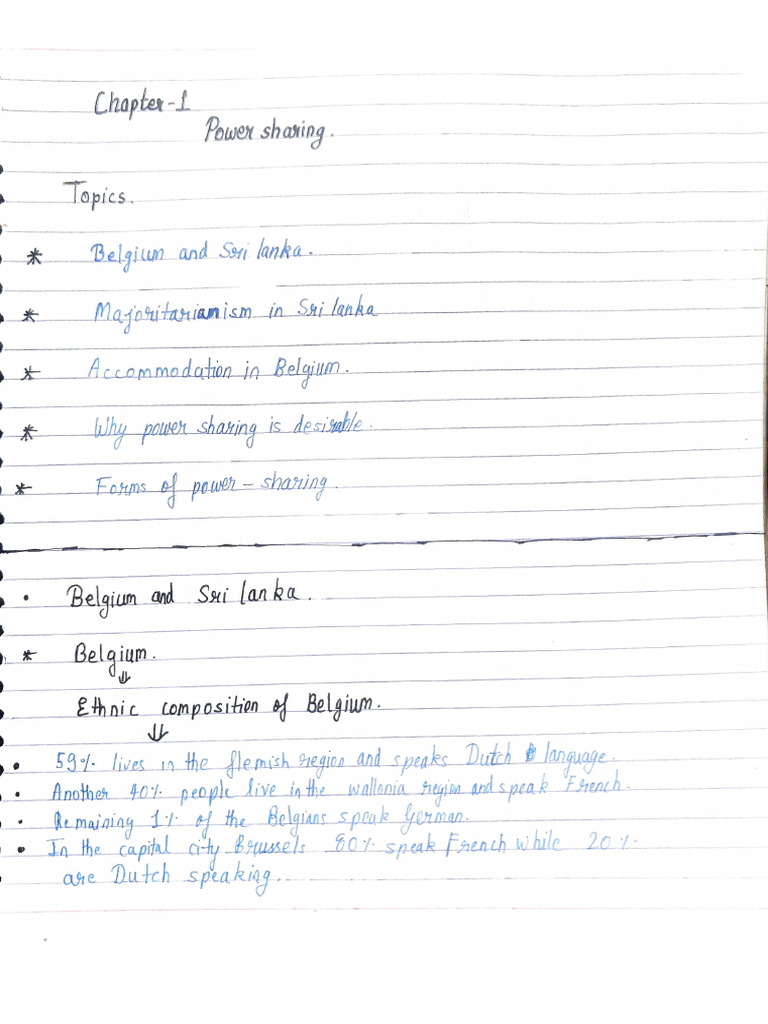 Chapter-1
Power sharing.
Topics.
* Belgium and Sri lanka.
* Majoritarianism in Sri lanka
* Accommodation in Belgium.
* Why power sharing is desirable.
* Forms of power - sharing.
• Belgium and Sri lanka.
* Belgium.
⇓
Ethnic composition of Belgium.
⇓
• 59% lives in the flemish region and speaks Dutch language.
• Another 40% people live in the wallonia region and speak French.
• Remaining 1% of the Belgians speak German.
• In the capital city Brussels 80% speak French while 20%
are Dutch speaking.